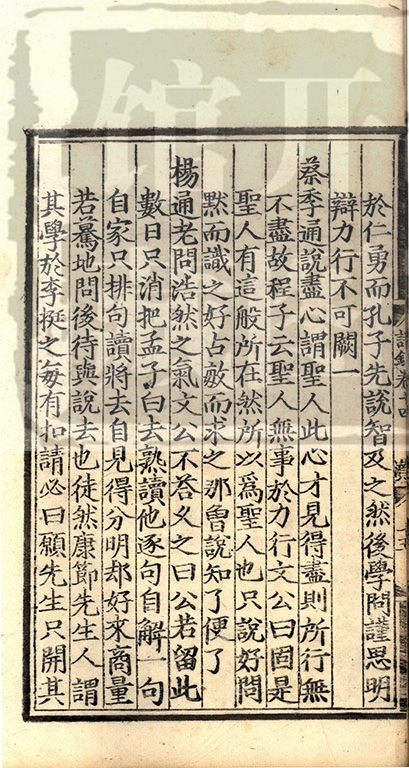 於仁勇而孔子先說智及之然後學問謹思明
辯力行不可闕一
蔡季通說盡心謂聖人此心才見得盡則所行無
不盡故程子云聖人無事於力行文公曰固是
聖人有這般所在然所以爲聖人也只說好問
默而識之好古敏而求之那曾說知了便了
楊通老問浩然之氣文公不荅乆之曰公若留此
數日只消把孟子白去熟讀他逐句自解一句
自家只排句讀將去自見得分明却好來商量
若驀地問後待與說去也徒然康節先生人謂
其學於李挺之每有扣請必曰願先生只開其